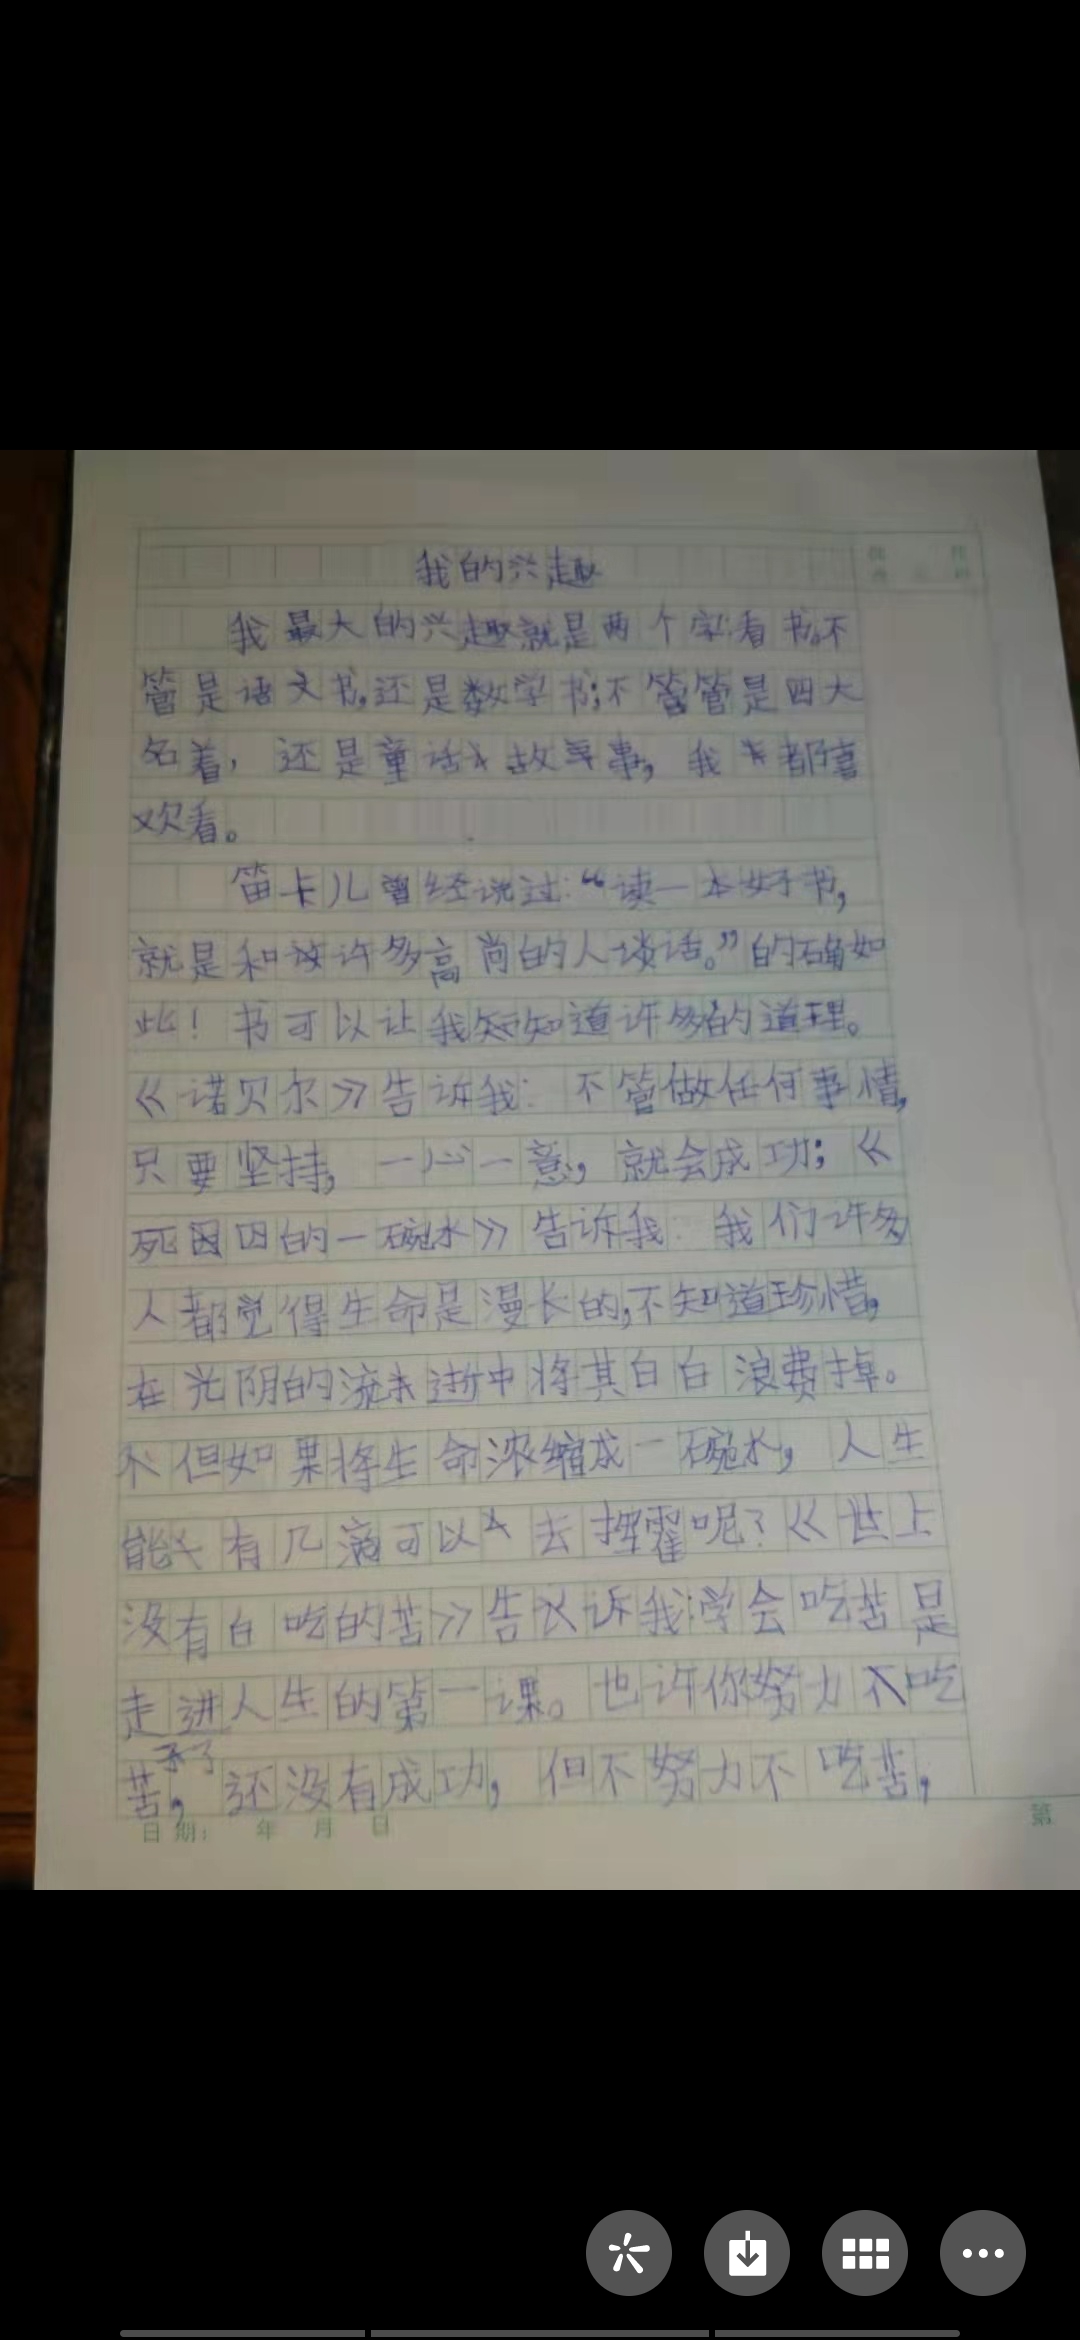 我的兴趣
我最大的兴趣就是两个字:看书。不
管是语文书,还是数学书;不管管是四大
名着,还是童话故事,我都喜
欢看。
笛卡儿曾经说过:“读一本好书,
就是和许多高尚的人谈话。”的确如
此!书可以让我知知道许多的道理。
《诺贝尔》告诉我:不管做任何事情,
只要坚持,一心一意,就会成功;《
死囚的一碗水》告诉我:我们许多
人都觉得生命是漫长的,不知道珍惜,
在光阴的流逝中将其白白浪费掉。
但如果将生命浓缩成一碗水,人生
能有几滴可以去挥霍呢?《世上
没有白吃的苦》告诉我:学会吃苦是
走进人生的第一课。也许你努力吃
苦了,还没有成功,但不努力不吃苦,
日期: 年 月 日
第